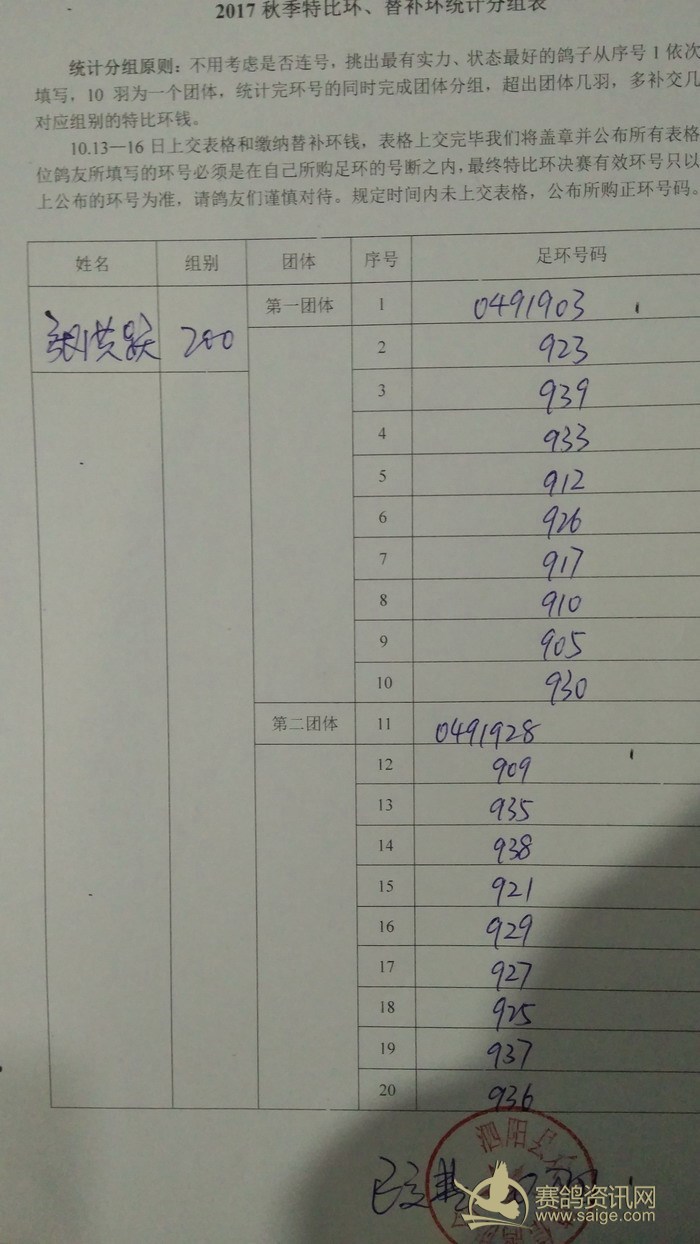 2017 秋季特比环、替补环统计分组表
统计分组原则：不用考虑是否连号，挑出最有实力、状态最好的鸽子从序号 1 依次
填写，10 羽为一个团体，统计完环号的同时完成团体分组，超出团体几羽，多补交几
对应组别的特比环钱。
10.13—16 日上交表格和缴纳替补环钱，表格上交完毕我们将盖章并公布所有表格
位鸽友所填写的环号必须是在自己所购足环的号断之内，最终特比环决赛有效环号只以
上公布的环号为准，请鸽友们谨慎对待。规定时间内未上交表格，公布所购正环号码。
姓名 组别 团体 序号 足环号码
第一团体 1 0491903
洪跃 200
2 923
3 939
4 933
5 912
6 926
7 917
8 910
9 905
10 930
第二团体 11 0491928
12 909
13 935
14 938
15 921
16 929
17 927
18 925
19 937
20 936
泗阳县
已交
赛鸽资讯网
www.saige.com